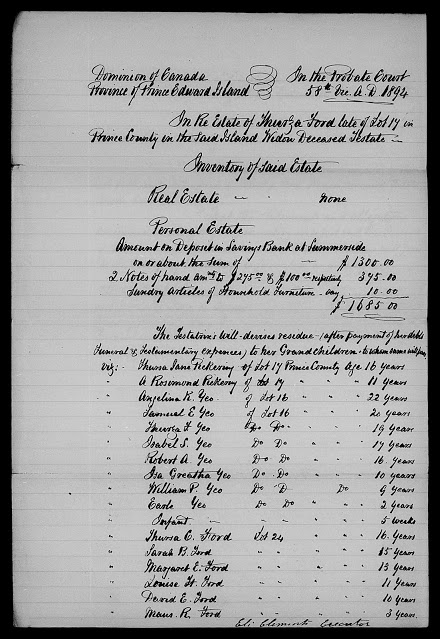 Dominion of Canada
Province of Prince Edward Island
In the Probate Court
58th Vic. A.D. 1894
In Re Estate of Thurza Ford late of Lot 17 in
Prince County in the said Island Widow Deceased Testate
Inventory of said Estate
Real Estate — none
Personal Estate
Amount on Deposit in Savings Bank at Summerside
on or about the sum of — $1300.00
2 Notes of hand amtg to $275.00 & $100.00 respectively 375.00
Sundry Articles of Household Furniture say 10.00
$1685.00
The Testatrix Will devises residue (after payment of her debts
Funeral & Testamentary expences) to her Grandchildren
viz:- Thursa Jane Pickering of Lot 17 Prince County Age 16 years
" A Rosemond Pickering of Lot 17 " " 11 years
" Angelina K. Yeo of Lot 16 " " 22 years
" Samuel E Yeo of Lot 16 " " 20 years
" Thurza F Yeo Do Do " " 19 years
" Isabel S. Yeo Do Do " " 17 years
" Robert A. Yeo Do Do " " 16 years
" Iza Greatha Yeo Do Do " " 10 years
" William P. Yeo Do D " Do 9 years
" Earle Yeo Do Do " " 2 years
" Infant " " " 5 weeks
" Thursa C. Ford Lot 24 " " 16 years
" Sarah B. Ford " " " 15 years
" Margaret E. Ford " " " 13 years
" Louise H. Ford " " " 11 years
" David E. Ford " " " 10 years
" R. Ford " " " 3 years
Eli Clements Executor